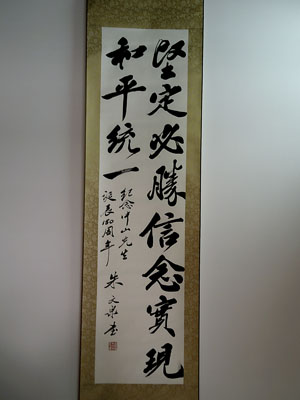 堅定必勝信念實現
和平統一
紀念中山先生
誕辰150周年
朱文泉書